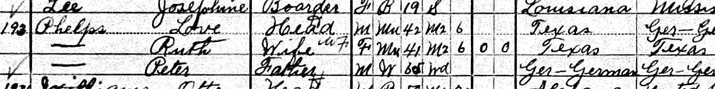 Lee Josephine Boarder F B 19 S Louisiana Missis
193 Phelps Love Head M Mu 42 M2 6 Texas Ger-Ge
— Ruth Wife F Mu 41 M2 6 0 0 Texas Texas
— Peter Father M W Wd Ger-German Ger-Ger